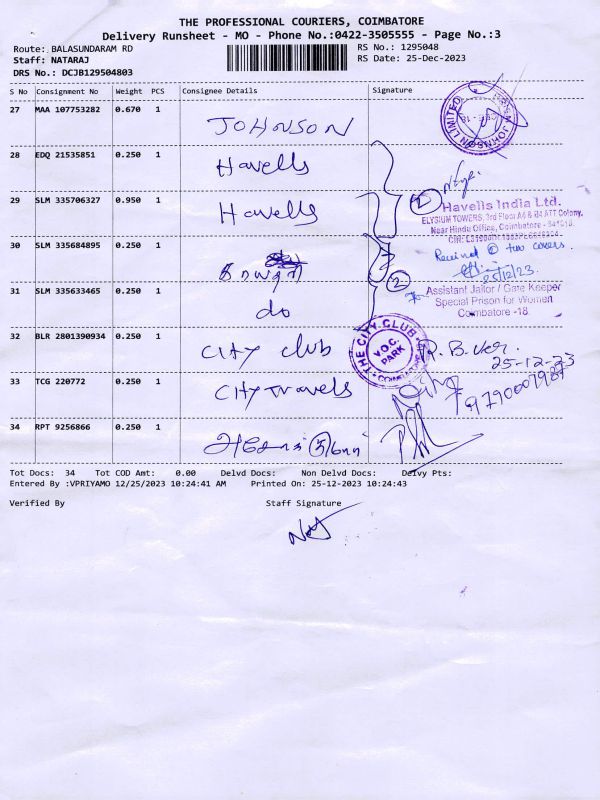 THE PROFESSIONAL COURIERS, COIMBATORE
Delivery Runsheet - MO - Phone No.:0422-3505555 - Page No.:3
Route: BALASUNDARAM RD
RS No.: 1295048
Staff: NATARAJ
RS Date: 25-Dec-2023
DRS No.: DCJB129504803
S No Consignment No Weight PCS Consignee Details Signature
27 MAA 107753282 0.670 1 JOHNSON
JOHNSON LIMITED
28 EDQ 21535851 0.250 1 Havells
29 SLM 335706327 0.950 1 Havells
2
Havells India Ltd.
ELYSIUM TOWERS, 3rd Floor A4 & B4 ATT Colony,
Near Hindu Office, Coimbatore - 641018.
30 SLM 335684895 0.250 1
Received 2 two covers.
25/12/23
2
31 SLM 335633465 0.250 1 do
Assistant Jailor / Gate Keeper
Special Prison for Women
Coimbatore -18
32 BLR 2801390934 0.250 1 City club
THE CITY CLUB
V.O.C. PARK
COIMBATORE
25-12-23
33 TCG 220772 0.250 1 City Travels
34 RPT 9256866 0.250 1
Tot Docs: 34 Tot COD Amt: 0.00 Delvd Docs: Non Delvd Docs: Delvy Pts:
Entered By :VPRIYAMO 12/25/2023 10:24:41 AM Printed On: 25-12-2023 10:24:43
Verified By Staff Signature